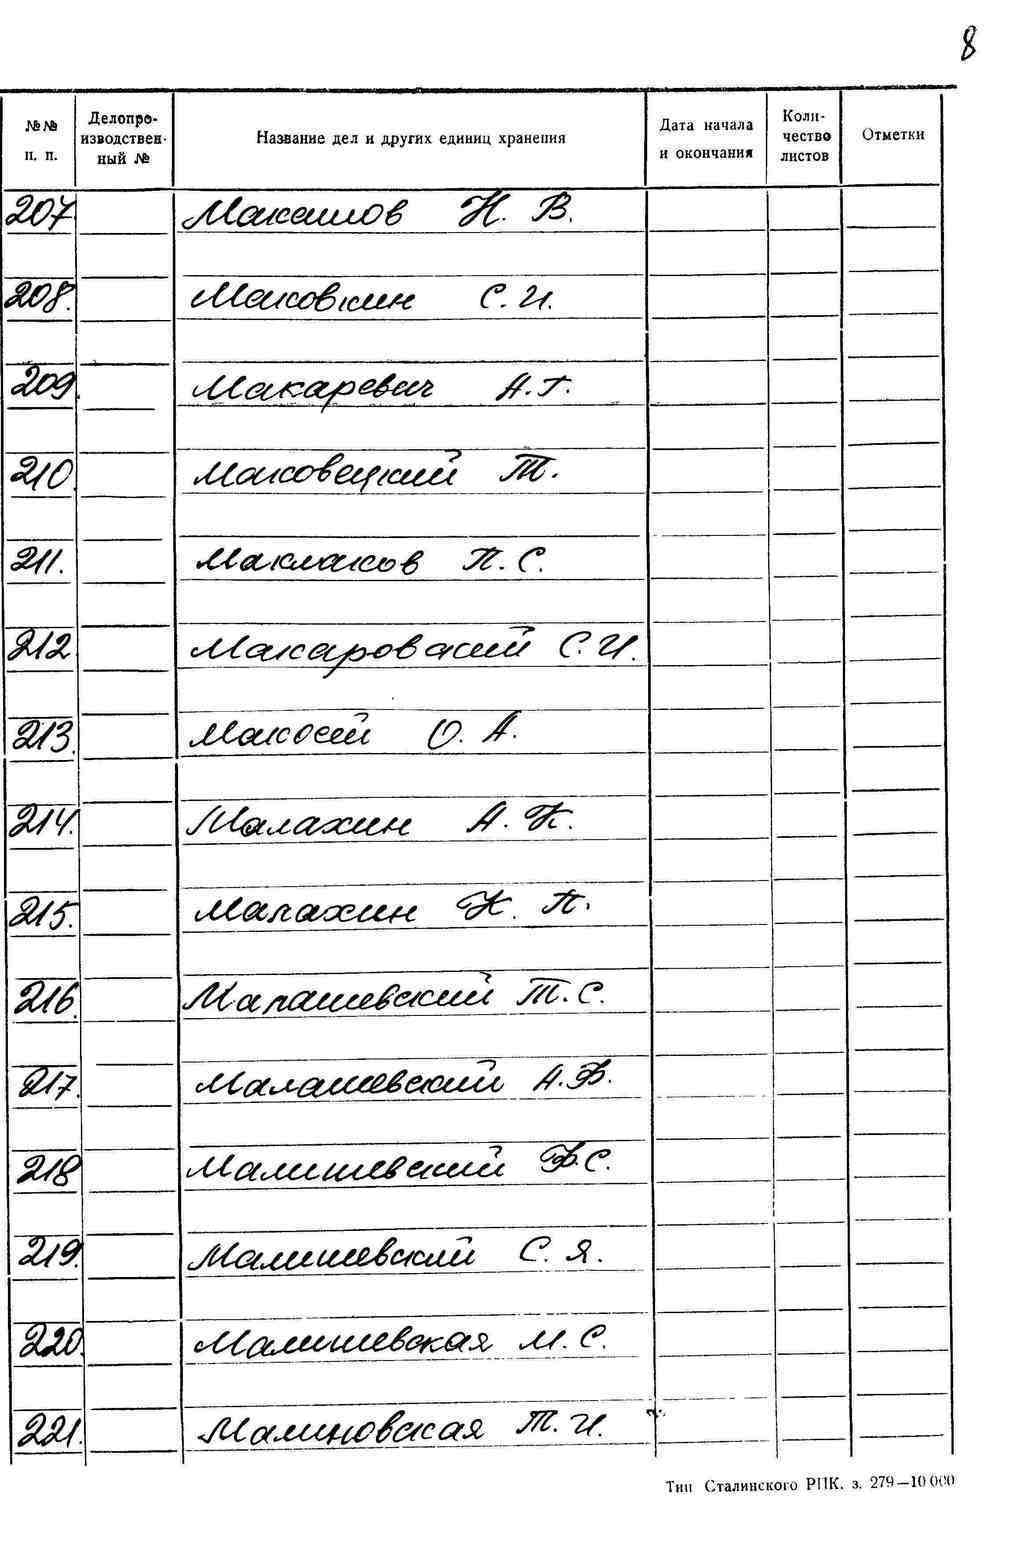 8
№№ п. п. Делопро-изводствен-ный № Название дел и других единиц хранения Дата начала и окончания Коли-чество листов Отметки
207 Макашов Н. В.
208. Маковкин С. И.
209. Макаревич А. Г.
210. Маковецкий Т.
211. Маклаков П. С.
212. Макаровский С. И.
213. Макосей О. А.
214. Малахин А. К.
215. Малахин К. П.
216. Малашевский Т. С.
217. Малашевский А. Ф.
218 Малишевский Ф. С.
219. Малишевский С. Я.
220. Малишевская М. С.
221. Малиновская Т. И.
Тип Сталинского РПК. з. 279—10 000